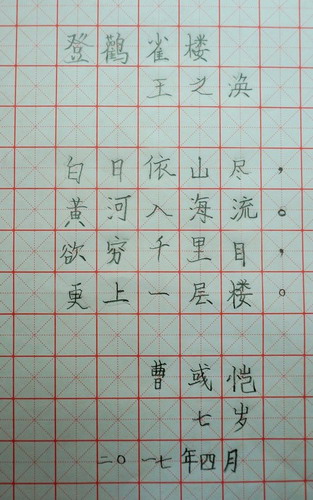 登鹳雀楼
王之涣
白日依山尽，
黄河入海流。
欲穷千里目，
更上一层楼。
曹彧恺
七岁
二〇一七年四月